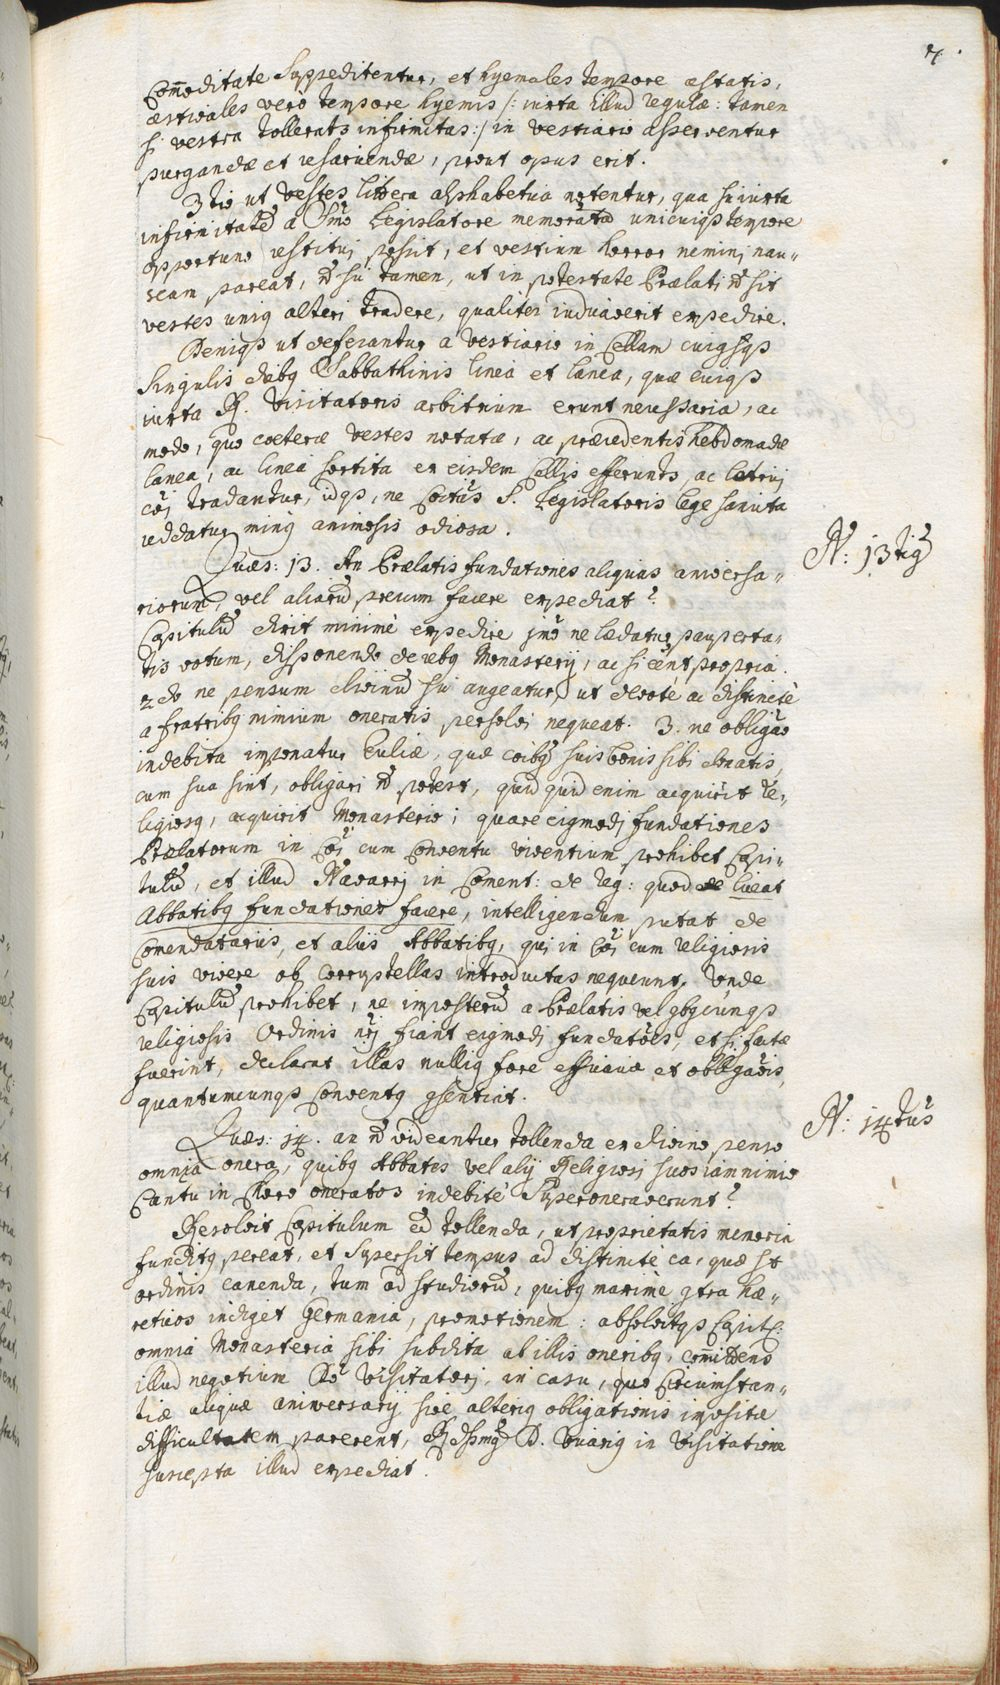 7.
Com̄oditate Suppeditentur, et hyemales tempore æstatis,
æstivales vero tempore hyemis /: iuxta illud regulæ: tamen
si vestra tollerat infirmitas :/ in vestiario asserventur
purgandæ et resarciendæ, prout opus erit.
3tio ut vestes littera alphabetica notentur, qua si iuxta
infirmitatē a Smō Legislatore memoratā unicuiqꝫ tempore
opportuno restitui possit, et vestium horror nemini nau-
seam pareat, nō sic tamen, ut in potestate Prælati nō sit
vestes uniꝰ alteri tradere, qualiter iudicaverit expedire.
Deniqꝫ ut deferantur a vestiario in Cellam cuiꝰqꝫ
Singulis diebꝰ Sabbathinis linea et lanea, quæ cuiqꝫ
iuxta R. Visitatoris arbitrium erunt necessaria, ac
modo, quo cœteræ vestes notatæ, ac præcedentis hebdomadæ
lanea, ac linea sordita ex eisdem Cellis efferunt, ac lotrici
cōi tradantur, idqꝫ, ne S. Legislatoris lege sancita
reddatur minꝰ animosis odiosa.
Quæs: 13. An Prælatis fundationes aliquas anniversa-
riorum, vel aliarū precum facere expediat?
Capitulū dixit minimè expedire jmō ne lædatur pauperta-
tis votum, disponendo de rebꝰ Monasterij, ac si eēnt propria.
2do ne pensum divinū sic augeatur, ut devotè ac distinctè
a fratribꝰ nimium oneratis persolvi nequeat. 3. ne obligāo
indebita imponatur Ecclīæ, quæ bonis sibi donatis,
cum sua sint, obligari nō potest, quidquid enim acquirit Re-
ligiosꝰ, acquirit Monasterio; quare eiꝰmodi fundationes
Prælatorum in cōi cum Conventu viventium prohibet Capi-
tulū, et illud Navarri in Coment: de reg: quod liceat
Abbatibꝰ fundationes facere, intelligendum putat de
Comendatariis, et aliis Abbatibꝰ, qui in cōi cum religiosis
suis vivere ob corruptellas introductas nequeunt, Unde
Capitulū prohibet, ne imposterū a Prælatis vel qbꝰcunqꝫ
religiosis Ordinis nri fiant eiꝰmodi fundatōes, et si factæ
fuerint, declarat illas nulliꝰ fore efficaciæ et obligaōis,
quantumcunqꝫ Conventꝰ ꝯsentiat.
Quæs: 14. an nō videantur tollenda ex divino penso
omnia onera, quibꝰ Abbates vel alij Religiosi suos iam nimio
Cantu in Choro oneratos indebitè Superoneraverunt?
Resolvit Capitulum eā tollenda, ut proprietatis memoria
funditꝰ pereat, et Supersit tempus ad distinctè ea, quæ st
ordinis canenda, tum ad studiorū, quibꝰ maximè ꝯtra hæ-
reticos indiget Germania, promotionem: absolvitqꝫ Capitl:
omnia Monasteria sibi subdita ab illis oneribꝰ, com̄ittens
illud negotium Dō Visitatori, in casu, quo Circumstan-
tiæ aliquæ anniversarij sive alteriꝰ obligationis impositæ
difficultatem parerent, Rdssmꝰ D. Vicariꝰ in Visitatione
suscepta illud expediat.
N: 13tiꝰ
N: 14tus